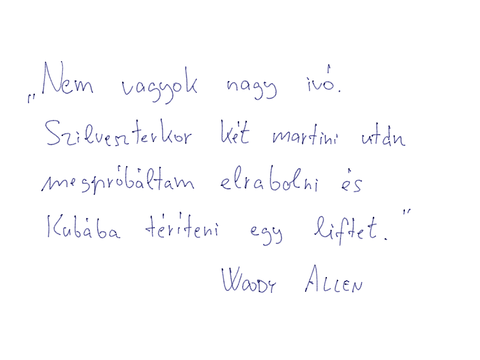 „Nem vagyok nagy ivó.
Szilveszterkor két martini után
megpróbáltam elrabolni és
Kubába téríteni egy liftet.”
WOODY ALLEN